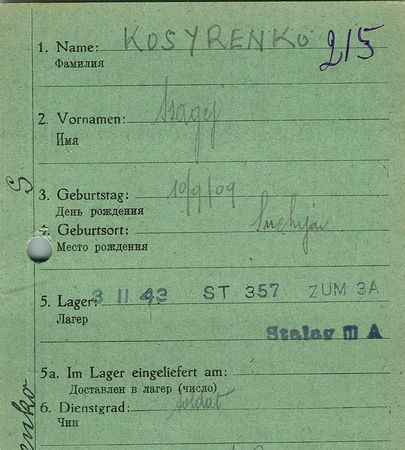 1. Name: KOSYRENKO 215
Фамилия
2. Vornamen:
Имя
3. Geburtstag: 10/9/09
День рождения
4. Geburtsort:
Место рождения
5. Lager: 3 11 43 ST 357 ZUM 3A
Лагер
Stalag III A
5a. Im Lager eingeliefert am:
Доставлен в лагер (число)
6. Dienstgrad: Soldat
Чин
S
enko